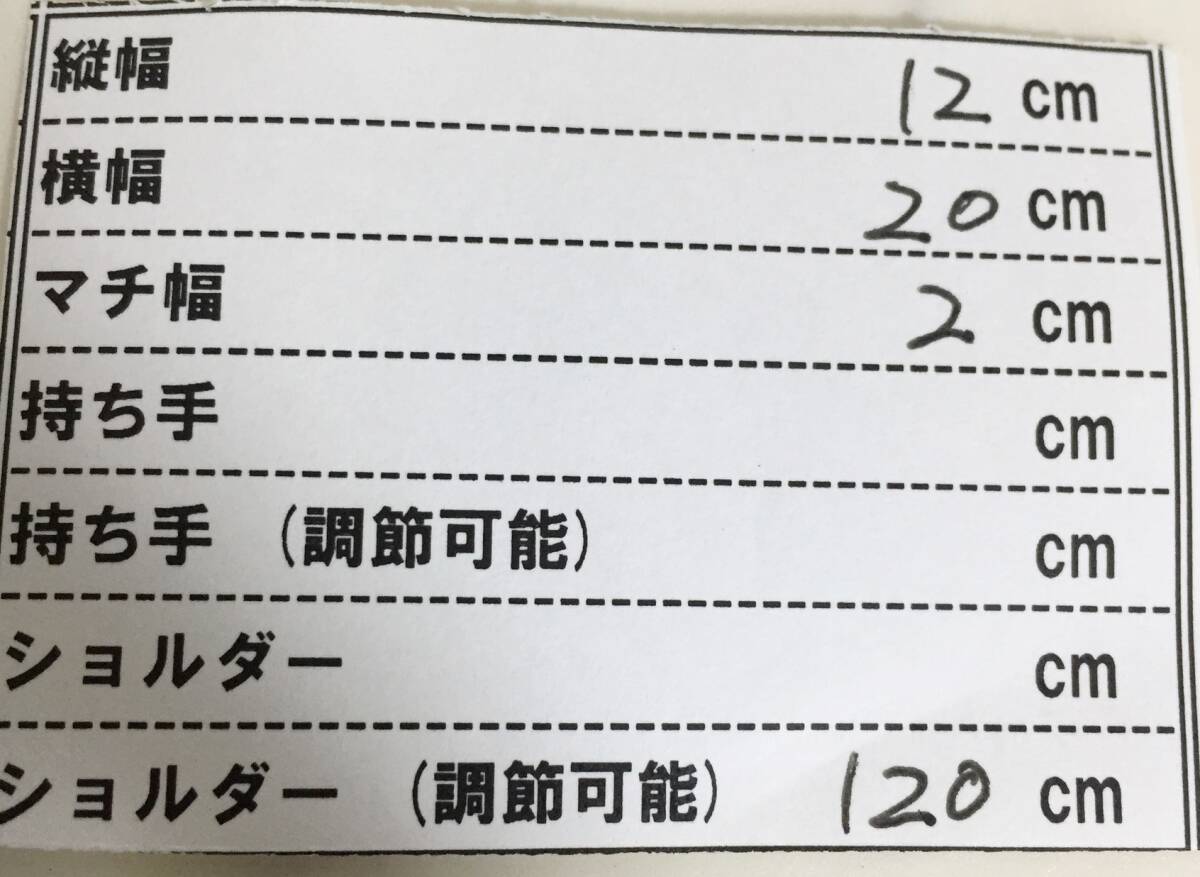 縦幅 12 cm
横幅 20 cm
マチ幅 2 cm
持ち手 cm
持ち手 (調節可能) cm
ショルダー cm
ショルダー (調節可能) 120 cm